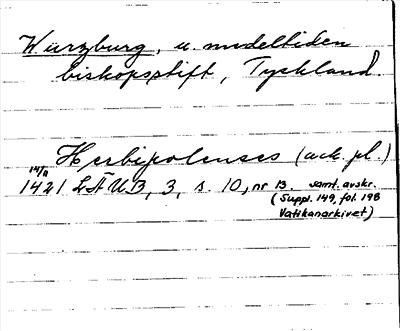 Würzburg, u. medeltiden
biskopsstift, Tyskland.
Herbipolenses (ack. pl.)
14/11
1421 LÄUB, 3, s. 10, nr 13. samt. avskr.
(Suppl. 149, fol. 198
Vatikanarkivet)